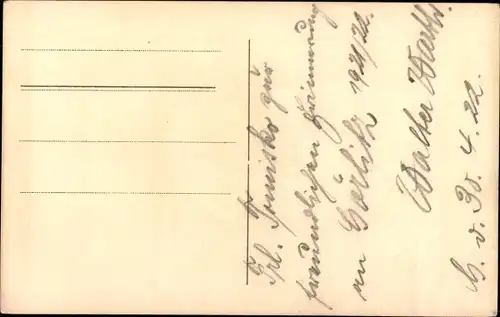 Frl. Tomisko zur
freundlichen Erinnerung
an Görlitz 1921/22.
Walter
d. 30.4.22.